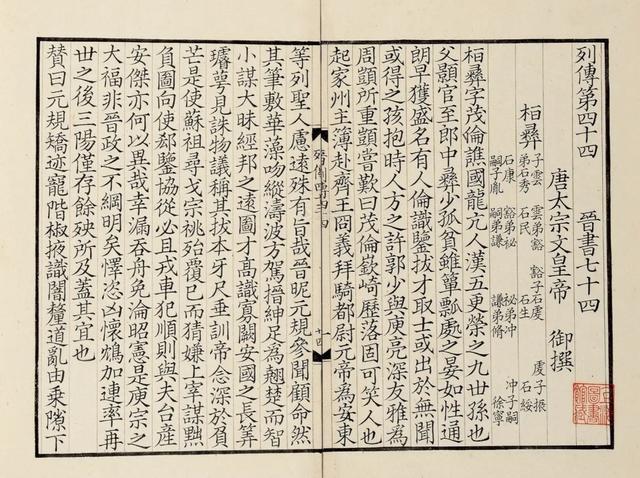 列傳第四十四　晉書七十四
唐太宗文皇帝　御撰
桓彝
子雲　雲弟豁　豁子石虔　虔子振
弟石秀　石民　石生　石綏
石康　豁弟祕　祕弟沖　沖子嗣
嗣子胤　嗣弟謙　謙弟脩　徐寧
桓彝字茂倫譙國龍亢人漢五更榮之九世孫也
父顥官至郎中彝少孤貧雖簞瓢處之晏如性通
朗早獲盛名有人倫識鑒拔才取士或出於無聞
或得之孩抱時人方之許郭少與庾亮深友雅為
周顗所重顗嘗歎曰茂倫嶔崎歷落固可笑人也
起家州主簿赴齊王冏義拜騎都尉元帝為安東
等列聖人慮遠殊有旨哉晉昵元規參聞顧命然
其筆敷華藻吻縱濤波方駕搢紳足為翹楚而智
小謀大昧經邦之遠圖才高識寡闕安國之長筭
璿萼見誅物議稱其拔本牙尺垂訓帝念深於負
芒是使蘇祖尋戈宗祧殆覆已而猜嫌上宰謀黜
負圖向使郗鑒協從必且戎車犯順則與夫台產
安傑亦何以異哉幸漏吞舟免淪昭憲是庾宗之
大福非晉政之不綱明矣懌恣凶懷鴆加連率再
世之後三陽僅存餘殃所及蓋其宜也
贊曰元規矯迹寵階椒掖識闇釐道亂由乘隙下